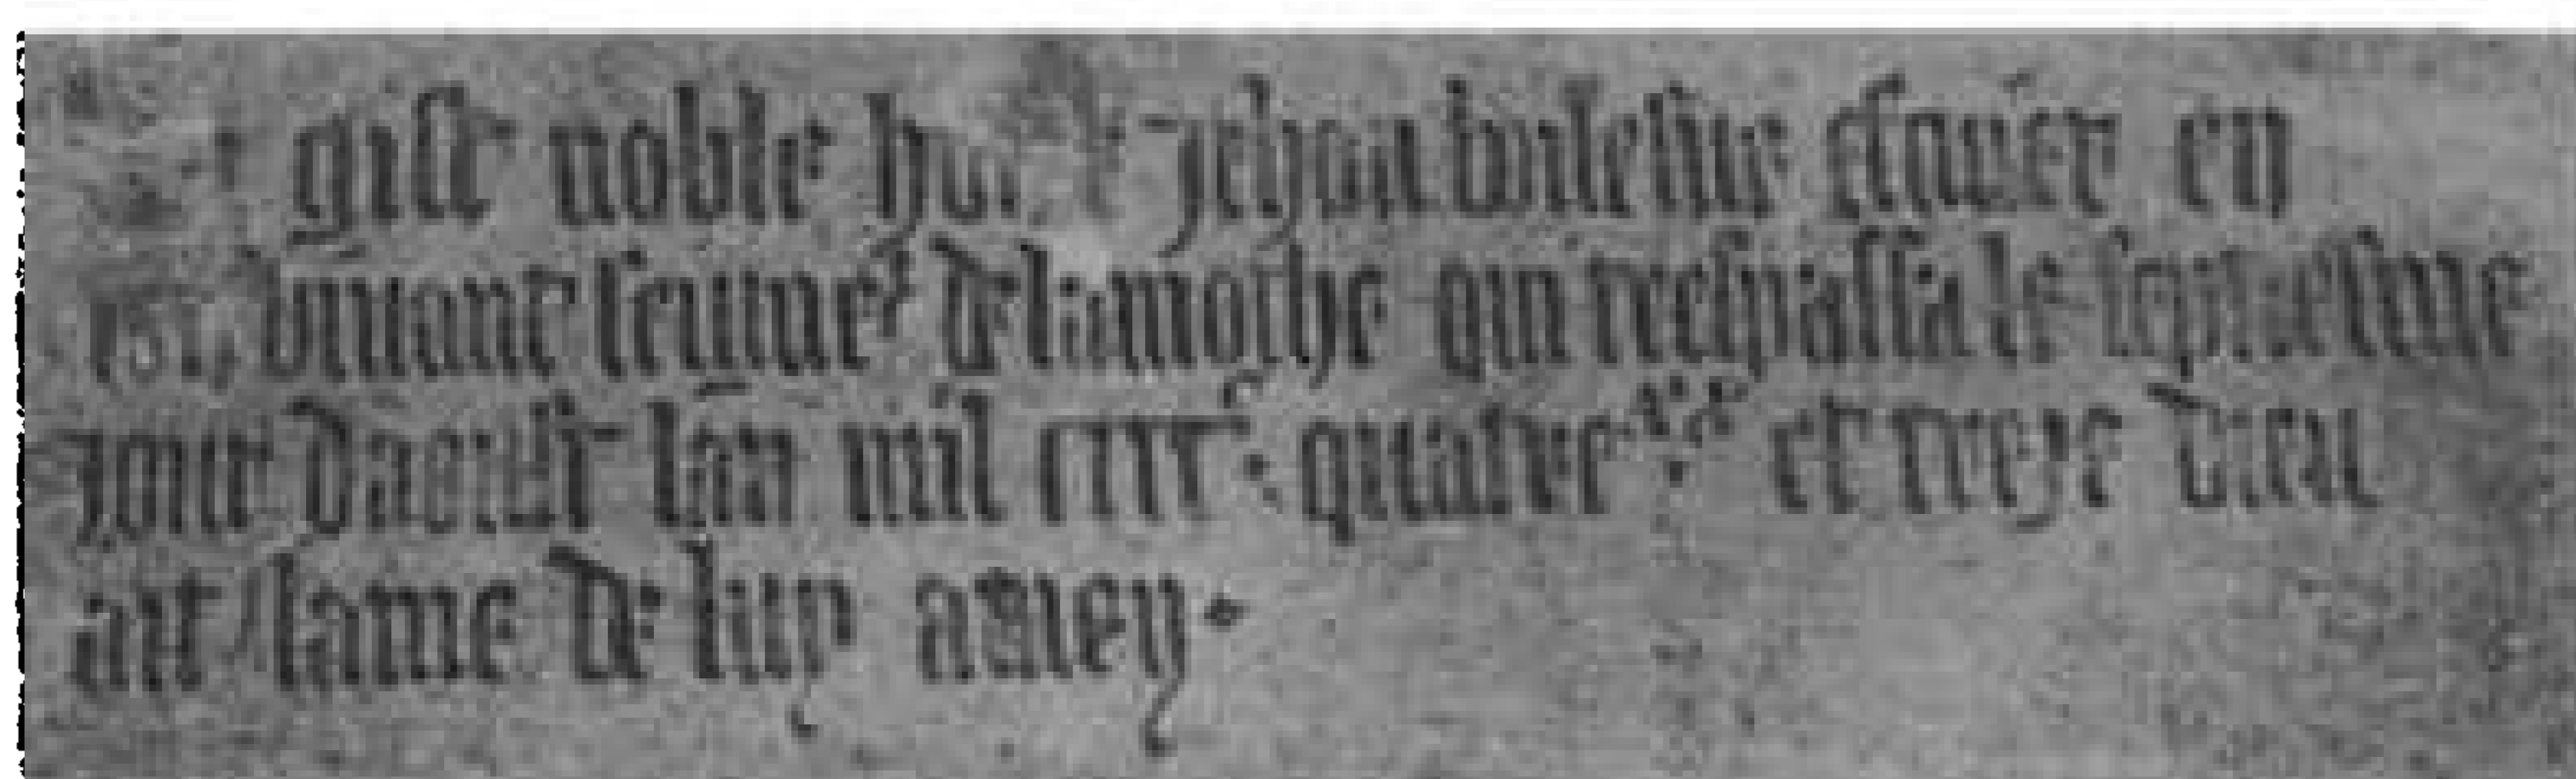 gist noble jehan escuier en
vivant seigneur de lamothe qui trespassa le septiesme
jour daoust lan mil cccc quatre xx et treze dieu
ait lame de luy amen